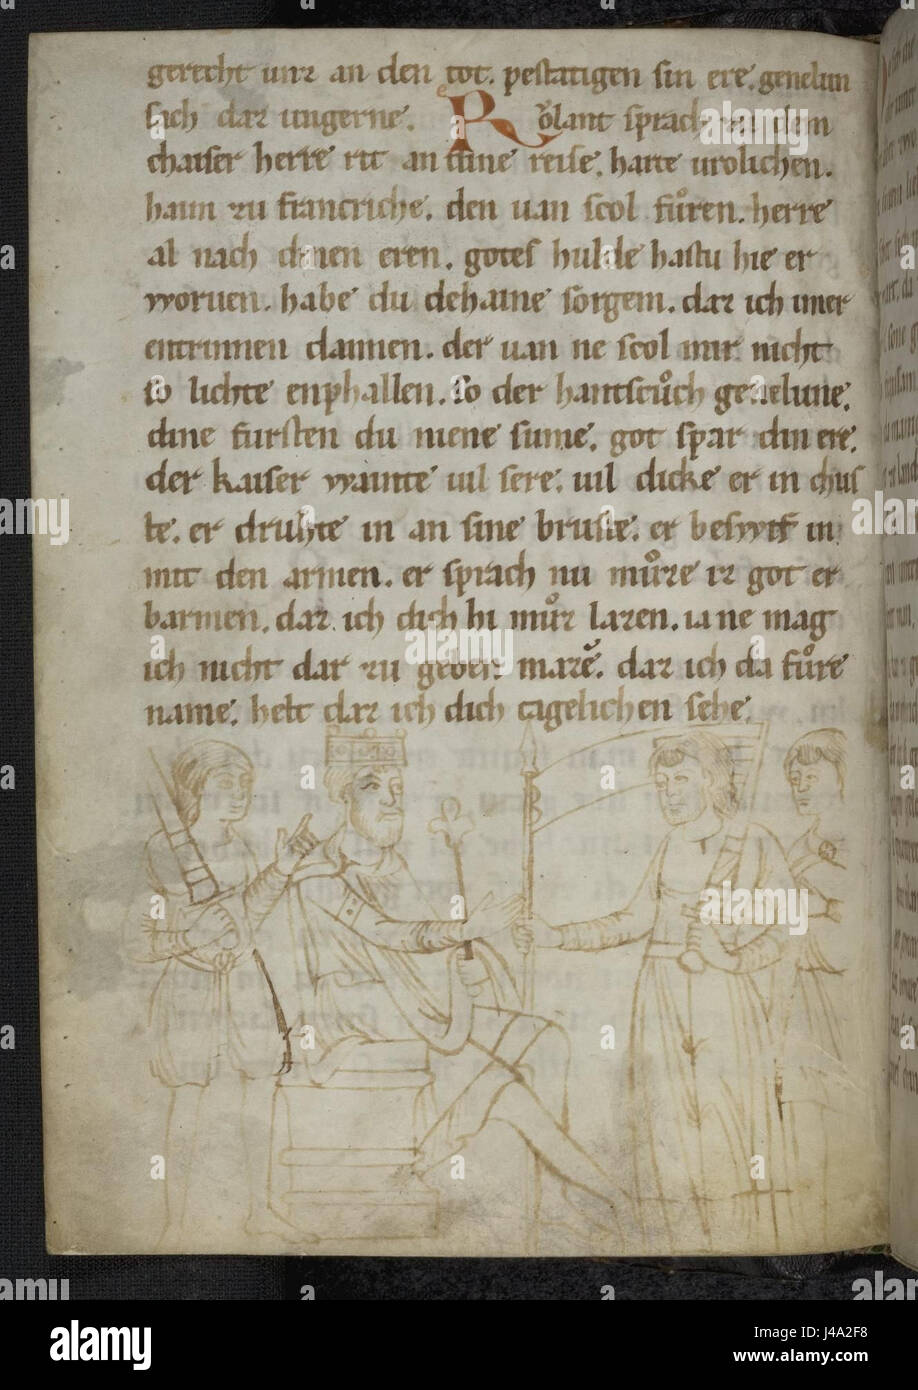 gerecht unz an den tot. pestatigen sin ere. genelun
sich daz ungerne. Ro̊lant sprach zu dem
chaiser herre rit an dine reise. harte urolichen.
haim zu francriche. den uan scol fůren. herre
al nach dinen eren. gotes hulde hastu hie er
woruen. habe du dehaine sorgem. daz ich imer
entrinnen dannen. der uan ne scol mir nicht
so lichte enphallen. so der hantscůch genelune.
dine fursten du niene sume. got spar din ere.
der kaiser wainte uil sere. uil dicke er in chus
te. er druhte in an sine bruste. er beswief in
mit den armen. er sprach nu můze iz got er
barmen. daz ich dich hi můz lazen. ia ne mag
ich nicht daz zu geben maze. daz ich da fůre
name. het daz ich dich tagelichen sehe.
alamy stock photo
J4A2F8
www.alamy.com